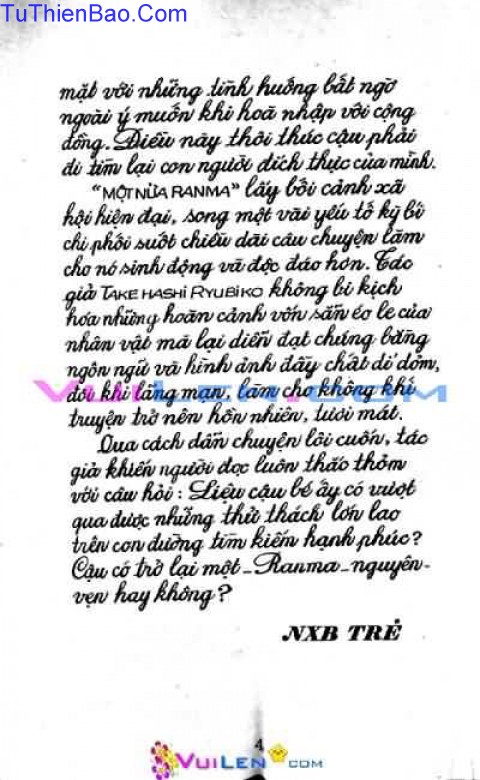 TuThienBao.Com
mặt với những tình huống bất ngờ
ngoài ý muốn khi hoà nhập với cộng
đồng. Điều này thôi thúc cậu phải
đi tìm lại con người đích thực của mình.
"MỘT NỬA RANMA" lấy bối cảnh xã
hội hiện đại, song một vài yếu tố kỳ bí
chi phối suốt chiều dài câu chuyện làm
cho nó sinh động và độc đáo hơn. Tác
giả TAKEHASHI RYUBIKO không bi kịch
hóa những hoàn cảnh vốn sẵn éo le của
nhân vật mà lại diễn đạt chúng bằng
ngôn ngữ và hình ảnh đầy chất dí dỏm,
đôi khi lãng mạn, làm cho không khí
truyện trở nên hồn nhiên, tươi mát.
Qua cách dẫn chuyện lôi cuốn, tác
giả khiến người đọc luôn thắc thỏm
với câu hỏi : Liệu cậu bé ấy có vượt
qua được những thử thách lớn lao
trên con đường tìm kiếm hạnh phúc?
Cậu có trở lại một - Ranma - nguyên -
vẹn hay không?
NXB TRẺ
4
VUILEN.COM